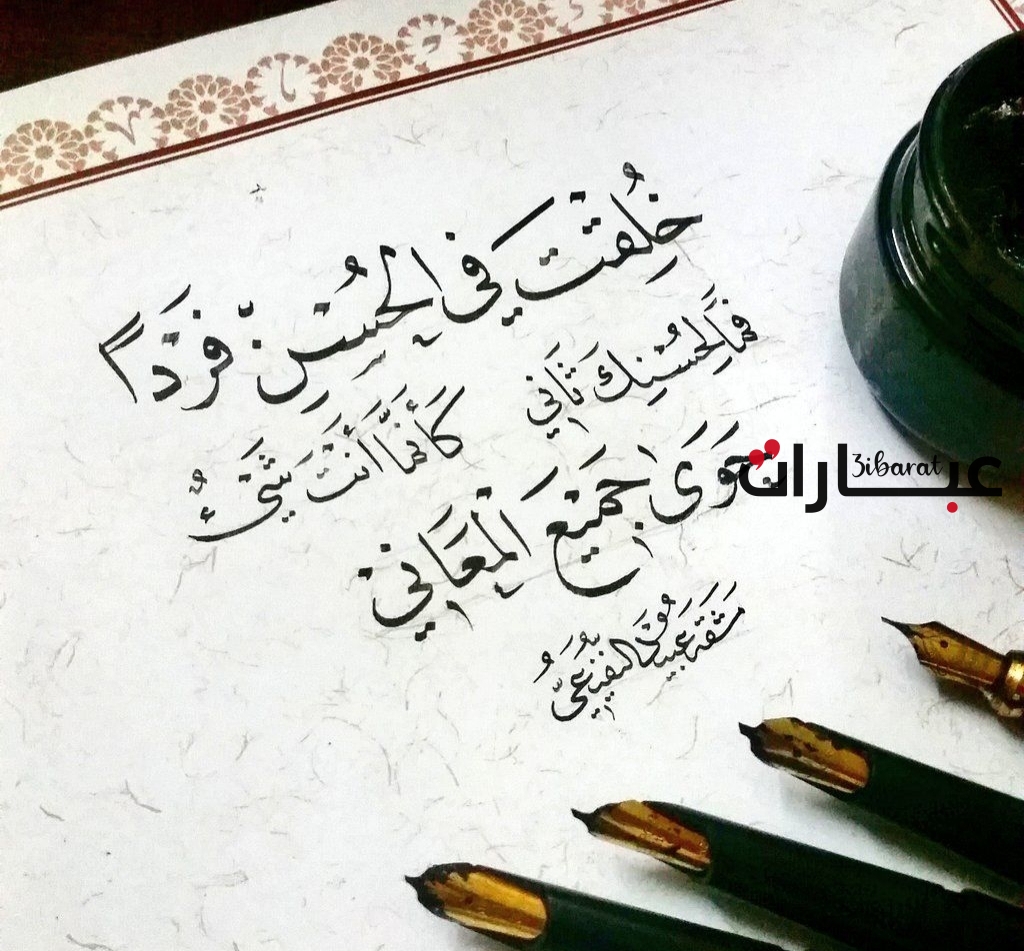 خُلِقْتَ فِي الْحُسْنِ فَرْدًا
فَمَا لِحُسْنِكَ ثَانِي
كَأَنَّمَا أَنْتَ شَيْءٌ
حَوَى جَمِيعَ الْمَعَانِي
مَشَقَهُ
عبارات
3ibarat